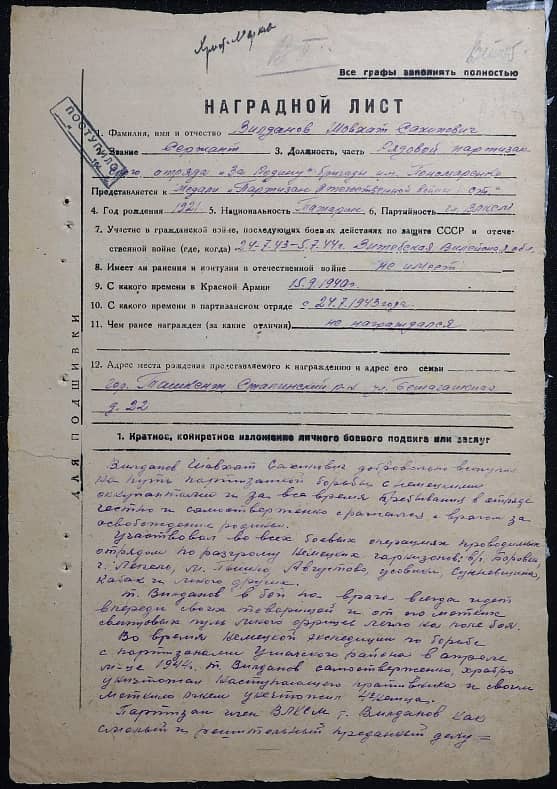 Все графы заполнять полностью
НАГРАДНОЙ ЛИСТ
ПОСТУПИЛО
1. Фамилия, имя и отчество Вилданов Шовхат Сахипович
2. Звание Сержант 3. Должность, часть Рядовой партизан
отряда "За Родину" бригады им. Пономаренко
Представляется к медали "Партизан Отечественной войны" ст."
4. Год рождения 1921 5. Национальность Татарин 6. Партийность чл. ВЛКСМ
7. Участие в гражданской войне, последующих боевых действиях по защите СССР и отече-
ственной войне (где, когда) 24-7.43-5.7.44г. Витебская Вилейская обл.
8. Имеет ли ранения и контузии в отечественной войне не имеет
9. С какого времени в Красной Армии 15.9.1940г.
10. С какого времени в партизанском отряде с 24.7.1943 года
11. Чем ранее награжден (за какие отличия) не награждался
12. Адрес места рождения представляемого к награждению и адрес его семьи
гор. Ташкент Сталинский р-н ул. Бешагачская
д. 22
ДЛЯ ПОДШИВКИ
1. Краткое, конкретное изложение личного боевого подвига или заслуг
Вилданов Шавхат Сахипович добровольно вступил
на путь партизанской борьбы с немецкими
оккупантами и за все время пребывания в отряде
честно и самоотверженно сражался с врагом за
освобождение родины.
Участвовал во всех боевых операциях проводимых
отрядом по разгрому немецких гарнизонов: в/г. Боровка,
г. Лепель, м. Пышно, Августово,
и много других.
т. Вилданов в бой на врага всегда идет
впереди своих товарищей и от его метких
свинцовых пуль много фрицев легло на поле боя.
Во время немецкой экспедиции по борьбе
с партизанами Ушачского района в апреле
м-це 1944г. т. Вилданов самоотверженно, храбро
уничтожал наступающего противника и своим
метким огнем уничтожил немца.
Партизан член ВЛКСМ т. Вилданов как
смелый и решительный преданный делу=